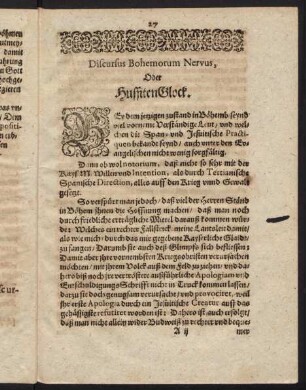 27
Discursus Bohemorum Nervus,
Oder
HussitenGlock.
BEy dem jetzigen zustand in Böhemb seynd
viel vorneme Verständige Leut, und wel-
chen die Span- und Jesuitische Practi-
quen bekandt seynd, auch unter den Ev-
angelischen nicht wenig sorgfältig.
Dann ob wol notorium, daß nicht so sehr mit der
Kays. M. Willen und Intention, als durch Tertianische
Spanische Direction, alles auff den Krieg unnd Gewalt
gesetzt.
So verspürt man jedoch, daß viel der Herren Ständ
in Böhem ihnen die Hoffnung machen, daß man noch
durch friedliche erträgliche Mittel darauß kommen wöl-
le. Welches ein rechter Fallstrick meine Lantsleut
als wie ob durch das nie gegebene Kayserliche Glaid,
zu fangen, Darumb sie auch deß Glimpffs sich befleissen,
Damit aber ihre vornembsten Kriegsobristen versuchen
möchten, was sie ihrem Volck auß dem Feld zu ziehen, und da-
hero biß noch zu vertröstter außführliche Apologiam und
Entschuldigungs Schrifft nicht in Truck kommen lassen,
darzu sie doch genugsam verursacht, und provociret, weil
ihr erste Apologia durch ein Jesuitische Creatur auff das
gehässigste refutiret worden ist: Dahero ist auch erfolgt,
daß man nicht allein wider Budweiß zu rechter und bequ-
A ij
mer